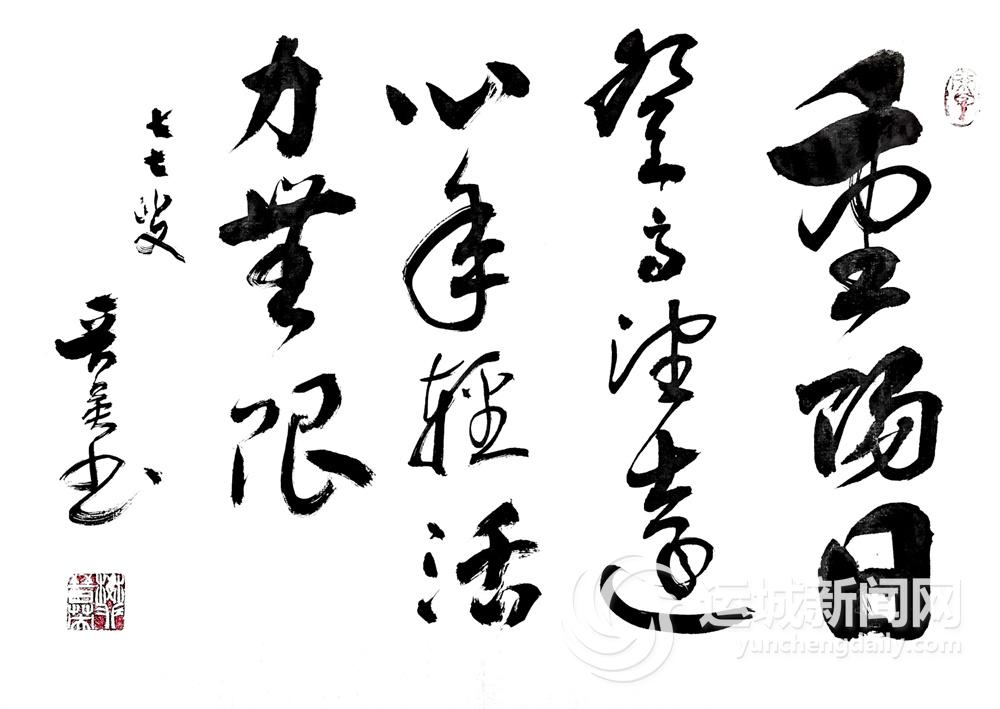 重陽日
登高望遠
心年輕活
力無限
七七叟
书
运城新闻网
yunchengdaily.com